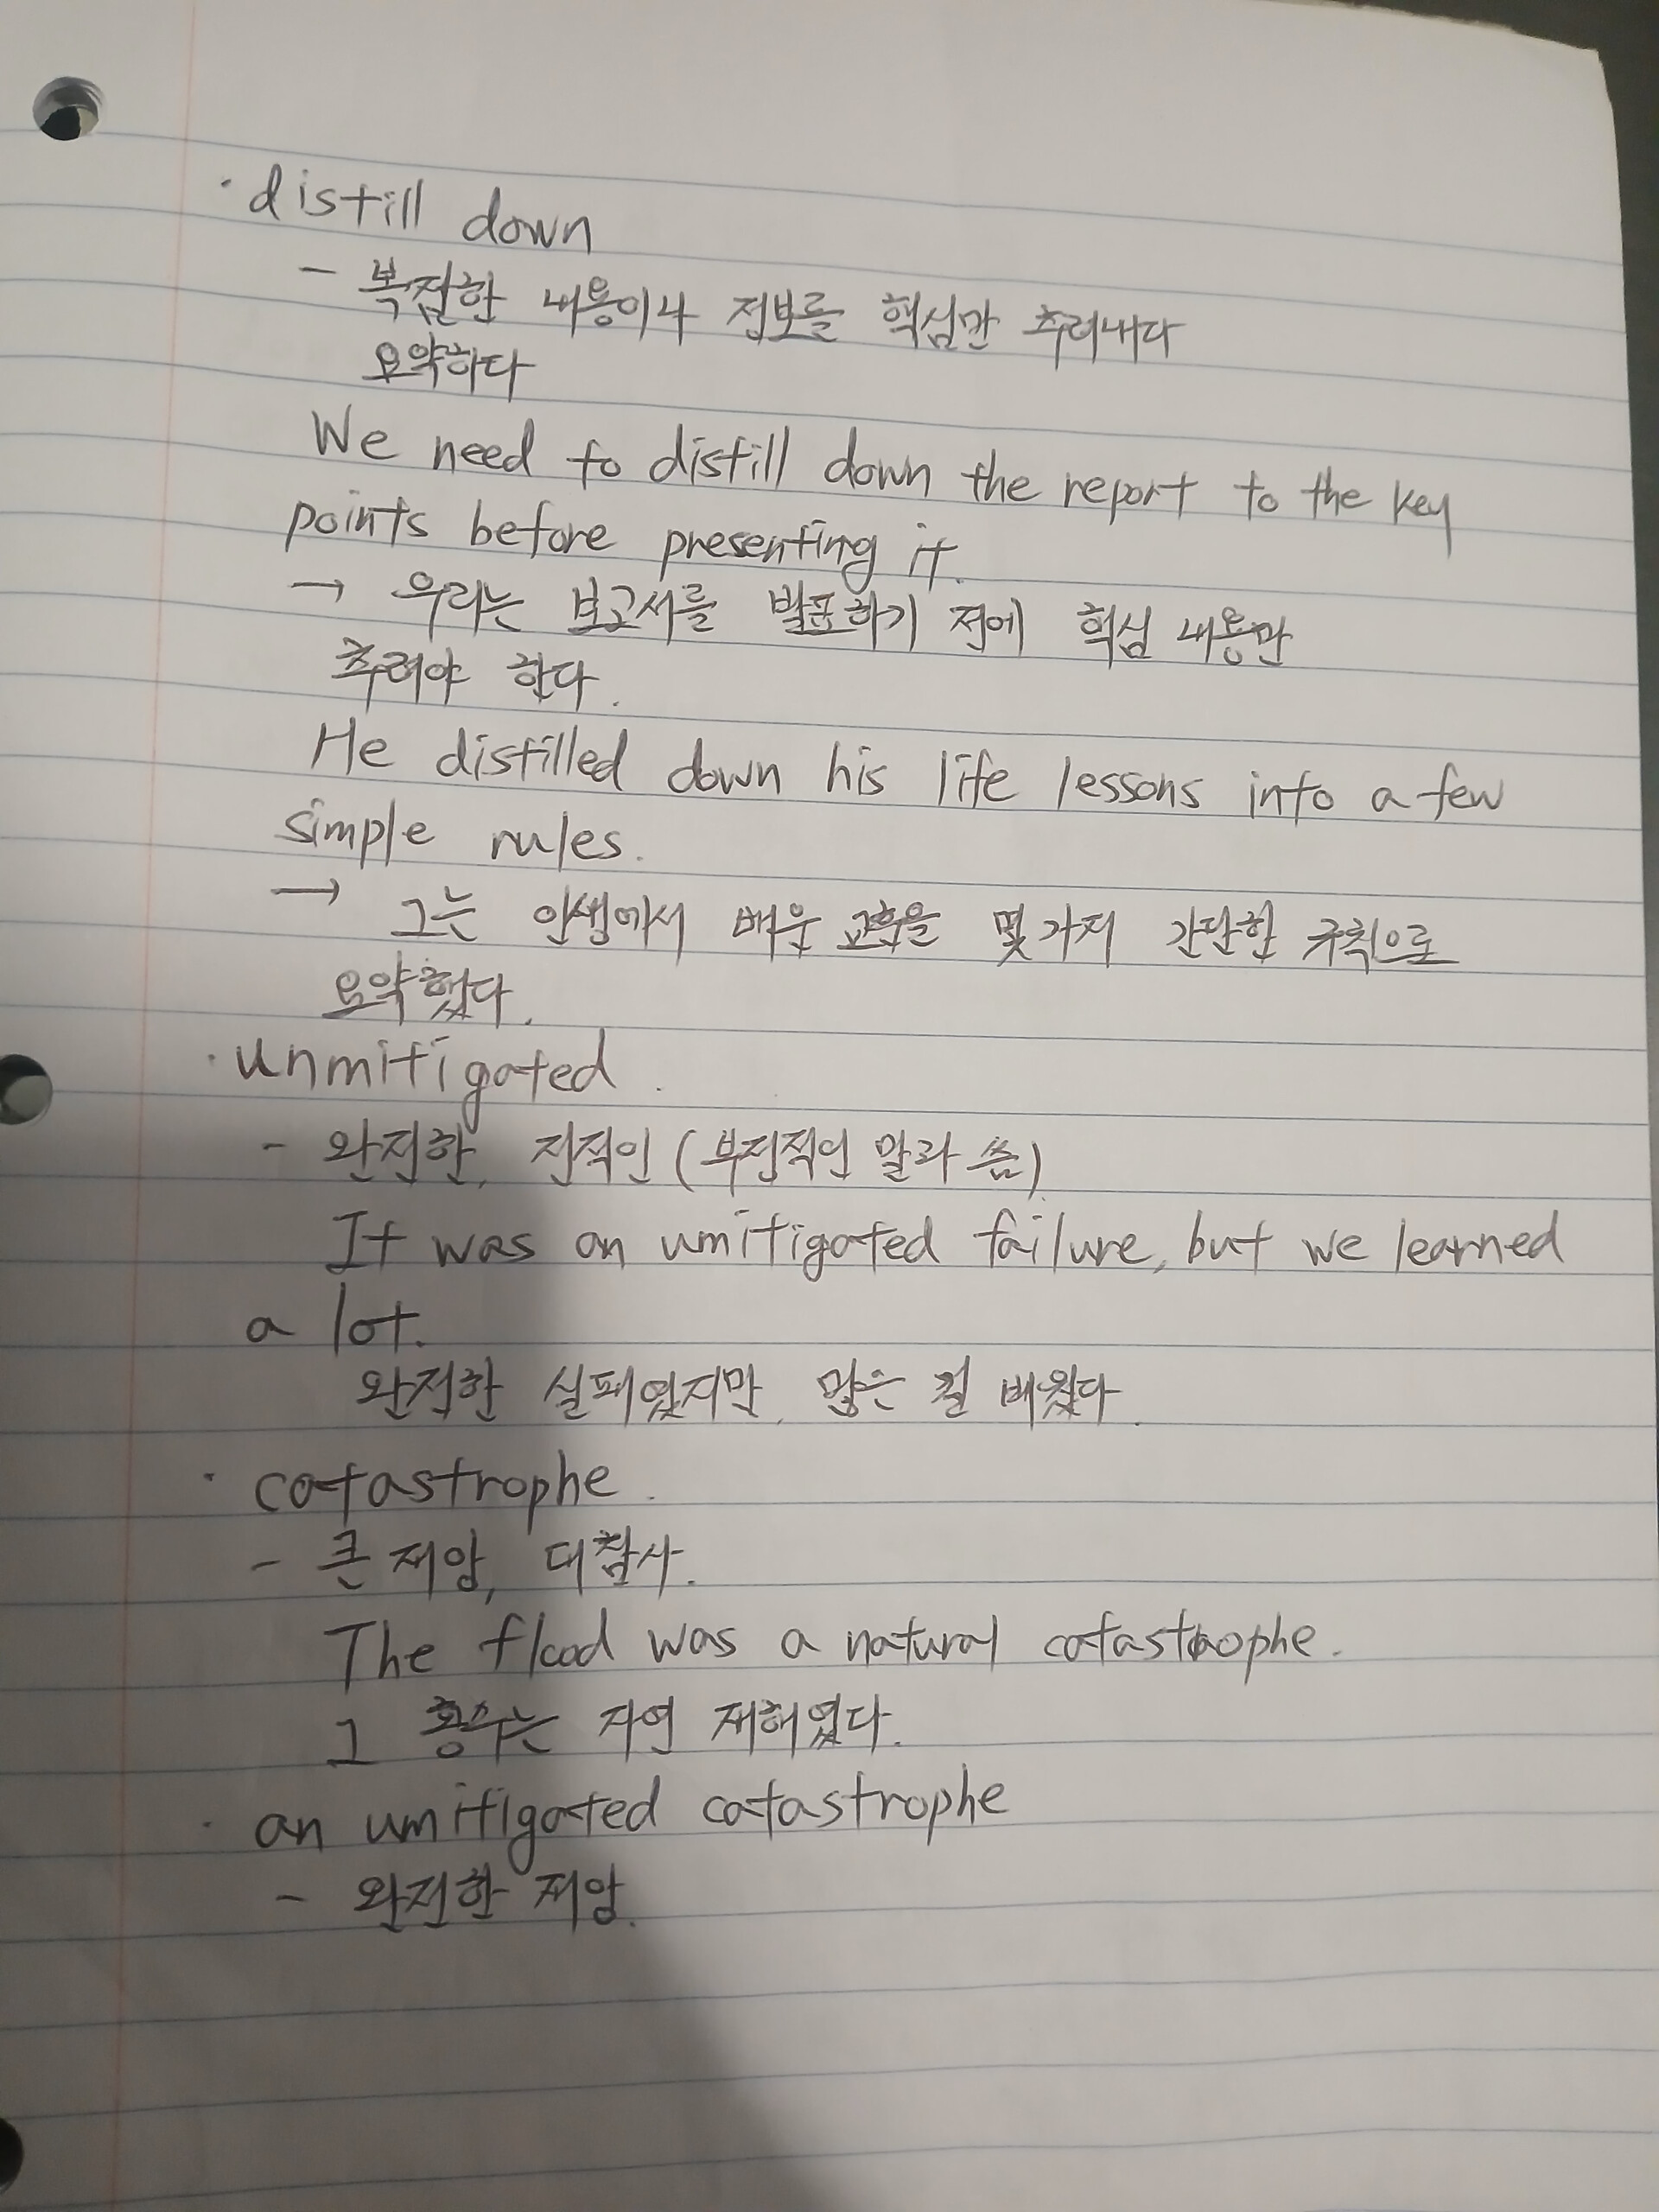 · distill down
- 복잡한 내용이나 정보를 핵심만 추려내다
요약하다
We need to distill down the report to the key
points before presenting it.
→ 우리는 보고서를 발표하기 전에 핵심 내용만
추려야 한다.
He distilled down his life lessons into a few
simple rules.
→ 그는 인생에서 배운 교훈을 몇가지 간단한 규칙으로
요약했다.
· unmitigated.
- 완전한, 전적인 (부정적인 말과 씀)
It was an unmitigated failure, but we learned
a lot.
완전한 실패였지만, 많은 걸 배웠다.
· catastrophe.
- 큰 재앙, 대참사.
The flood was a natural catastrophe.
그 홍수는 자연 재해였다.
· an unmitigated catastrophe
- 완전한 재앙.